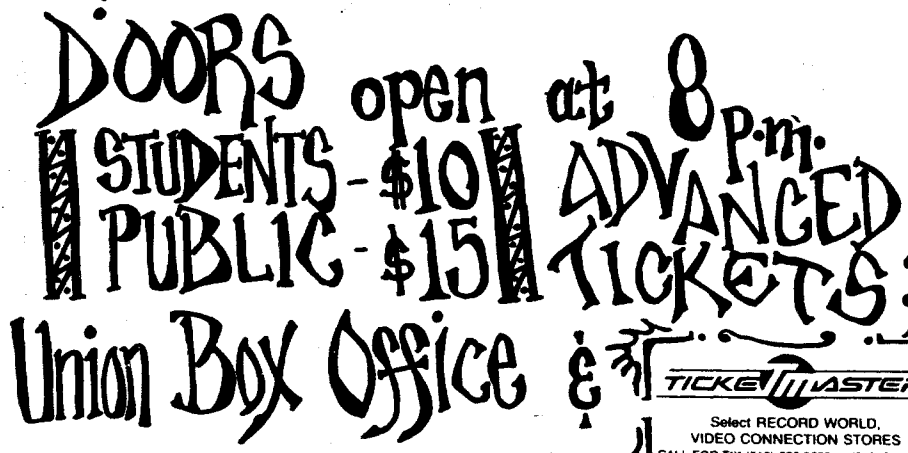 DOORS open at 8 p.m.
STUDENTS - $10
PUBLIC - $15
ADVANCED
TICKETS:
Union Box Office &
TICKETMASTER
Select RECORD WORLD,
VIDEO CONNECTION STORES